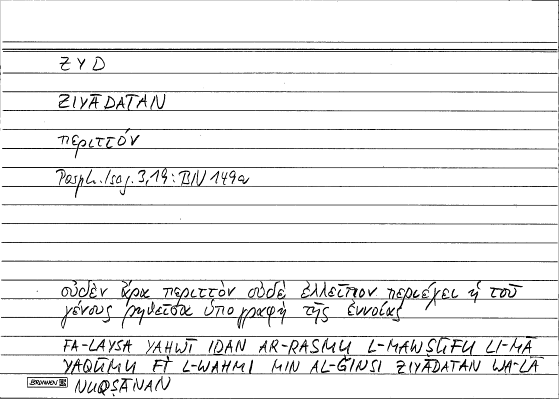 ZYD
ZIYĀDATAN
περιττόν
Porph. Isag. 3,19: BN 149a
οὐδὲν ἄρα περιττὸν οὐδὲ ἐλλεῖπον περιέχει ἡ τοῦ
γένους ῥηθεῖσα ὑπογραφὴ τῆς ἐννοίας
FA-LAYSA YAḤWĪ IḎAN AR-RASMU L-MAWṢŪFU LI-MĀ
YAQŪMU FĪ L-WAHMI MIN AL-ĞINSI ZIYĀDATAN WA-LĀ
NUQṢĀNAN
BRUNNEN